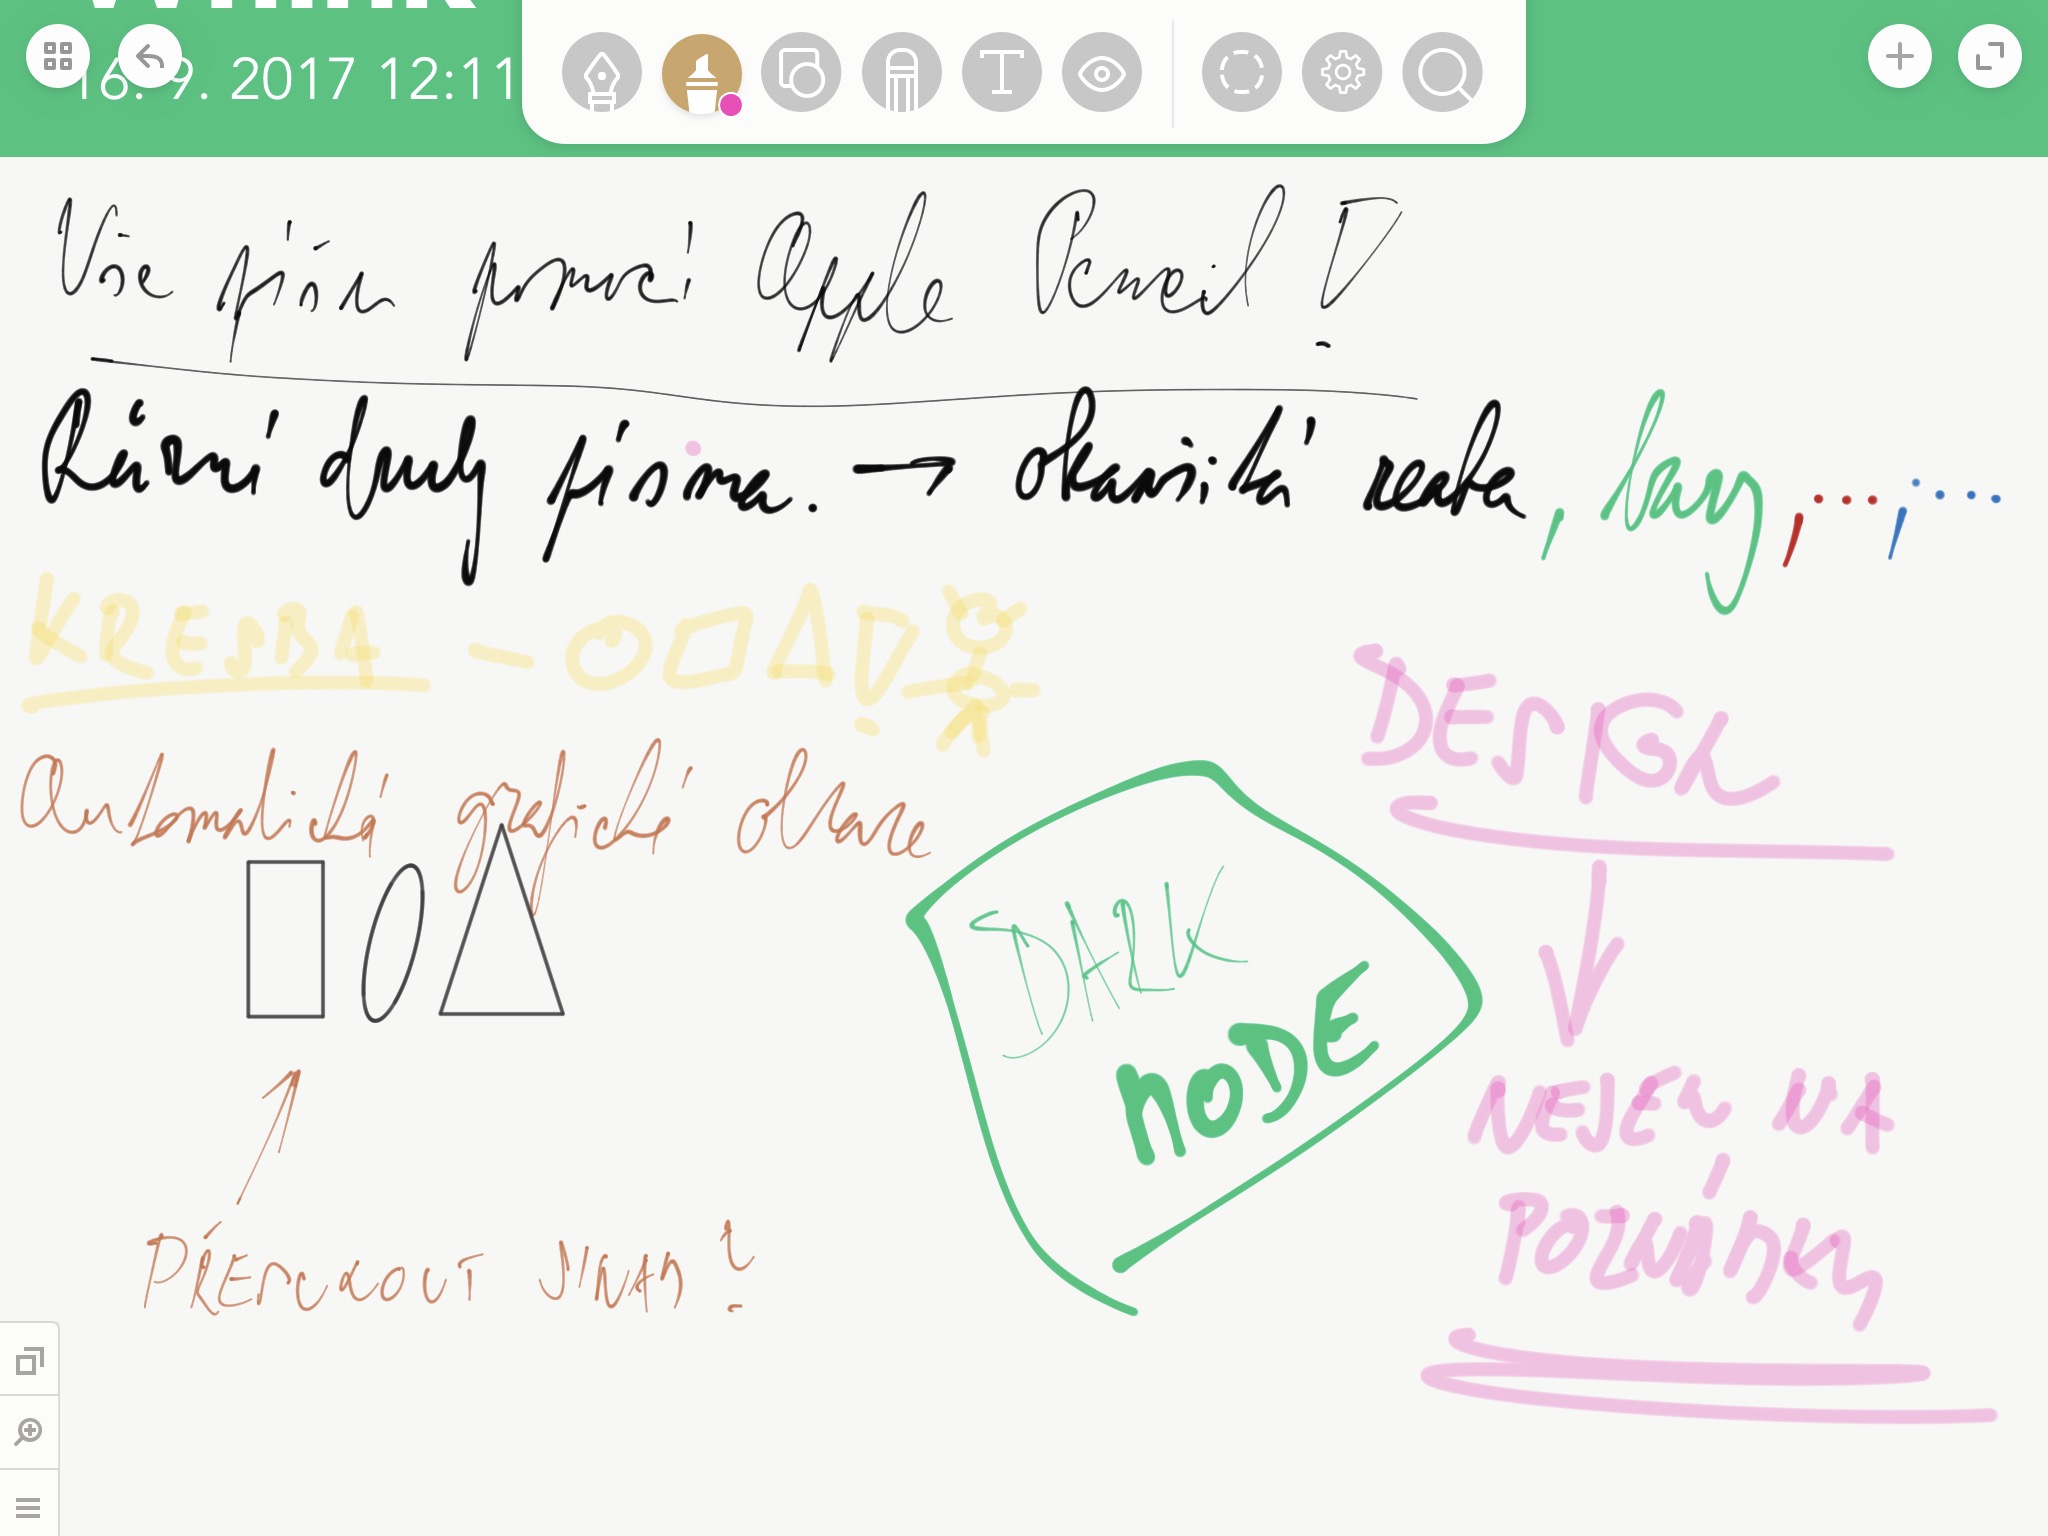 16. 9. 2017 12:11
Vše píšu pomocí Apple Pencil!
Různé druhy písma. → okamžitá reakce, barvy, ..., ....
KRESBA -
DESIGN
Automatické grafické obrazce
DARK
MODE
NEJEN NA
POZNÁMKY
PŘESUNOUT JINAM?